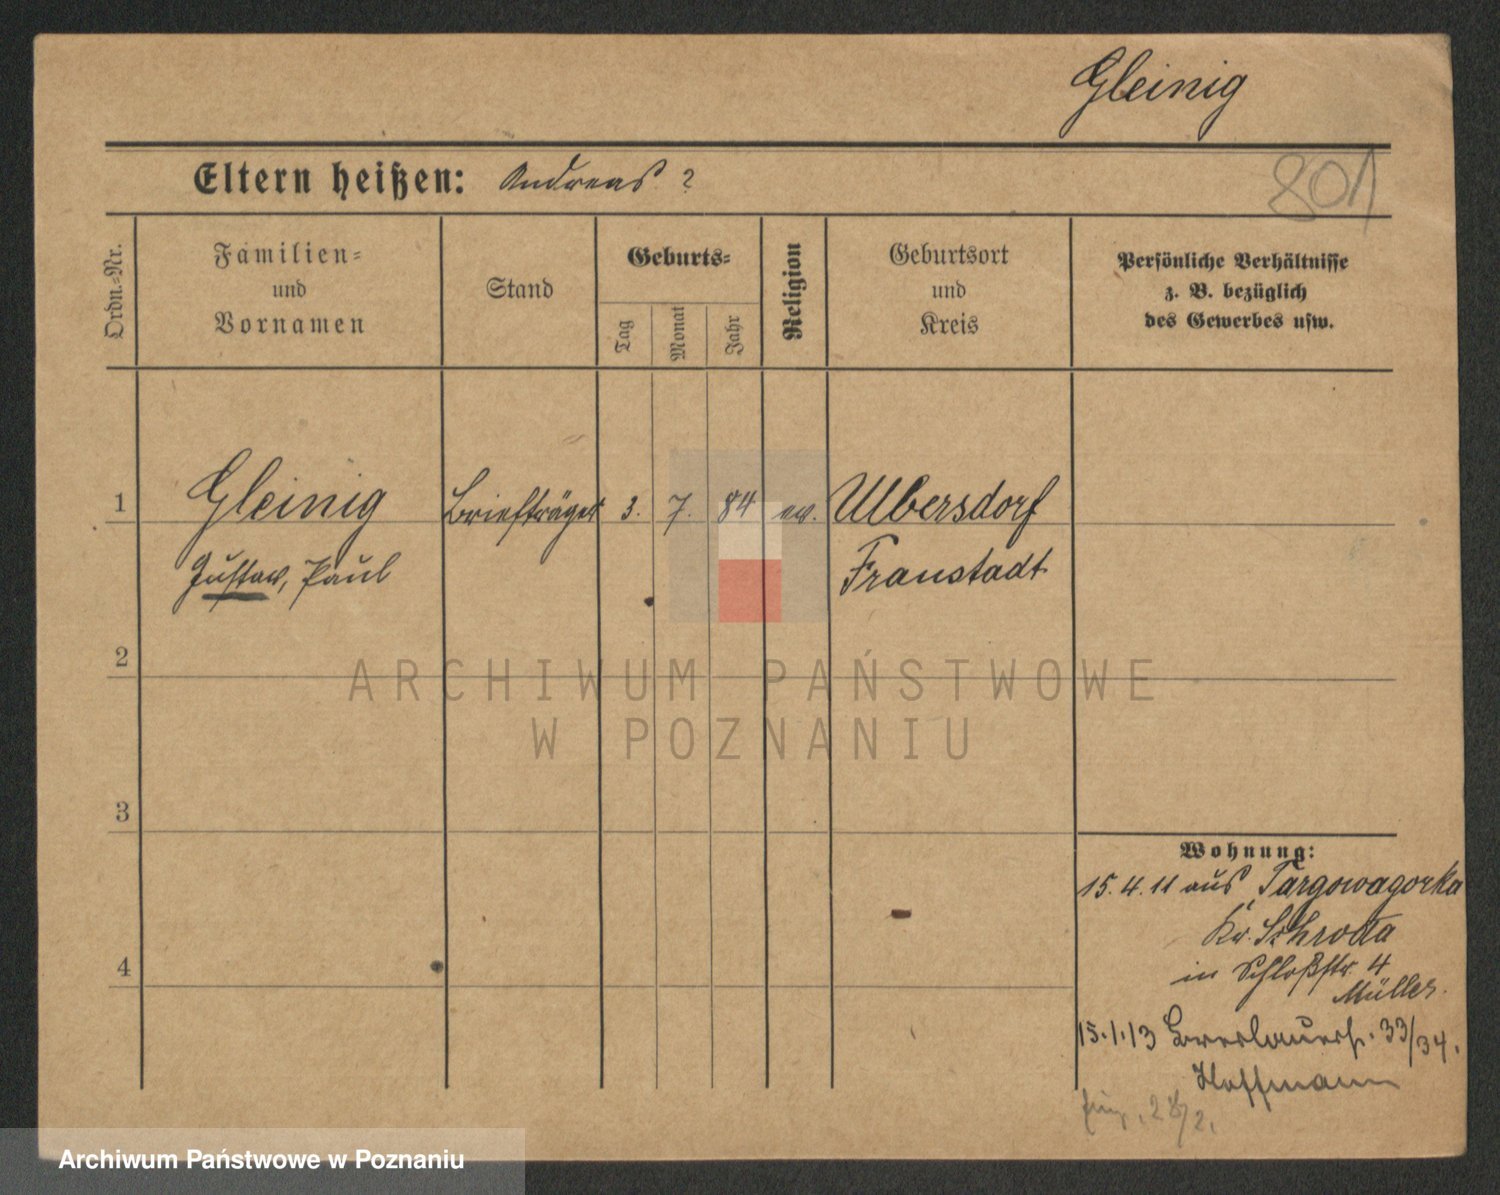 Gleinig
801
Eltern heißen: Andreas ?
Ordn.-Nr.
Familien-
und
Vornamen
Stand
Geburts-
Tag
Monat
Jahr
Religion
Geburtsort
und
Kreis
Persönliche Verhältnisse
z. B. bezüglich
des Gewerbes usw.
1 Gleinig Briefträger 3. 7. 84 ev. Ulbersdorf
Gustav, Paul Fraustadt
2
ARCHIWUM PAŃSTWOWE
W POZNANIU
3
Wohnung:
15.4.11 aus Targowagorka
Kr. Schroda
4
in Schloßstr. 4
Müller.
15.1.13 Breslauerstr. 33/34.
Hoffmann
Archiwum Państwowe w Poznaniu